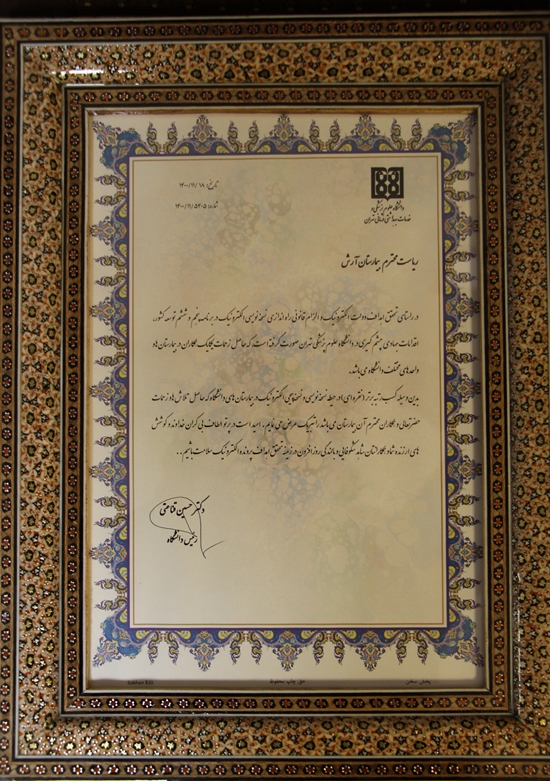 تاریخ: ۱۴۰۰/۱۱/۱۹
شماره: ۱۴۰۰/۱۱/۵۲۰۵
دانشگاه علوم پزشکی و
خدمات بهداشتی درمانی تهران
ریاست محترم بیمارستان آرش
در راستای تحقق اهداف دولت الکترونیک و الزام قانونی راه اندازی نسخه نویسی الکترونیک در برنامه پنجم و ششم توسعه کشور،
اقدامات جهادی چشم گیری در دانشگاه علوم پزشکی تهران صورت گرفته است، که حاصل زحمات یکایک همکاران در بیمارستان ها و
واحدهای مختلف دانشگاه می باشد.
بدین وسیله کسب رتبه برتر (نقره ای) در حیطه نسخه نویسی و نسخه پیچی الکترونیک در بیمارستان های دانشگاه که حاصل تلاش ها و زحمات
حضرتعالی و همکاران محترم آن بیمارستان می باشد را تبریک عرض می نمایم. امید است در پرتو الطاف بی کران خداوند و کوشش
های ارزنده شما و همکارانتان شاهد شکوفایی و بالندگی روزافزون در زمینه تحقق اهداف پرونده الکترونیک سلامت باشیم..
دکتر حسین قناعتی
رئیس دانشگاه
حق چاپ محفوظ